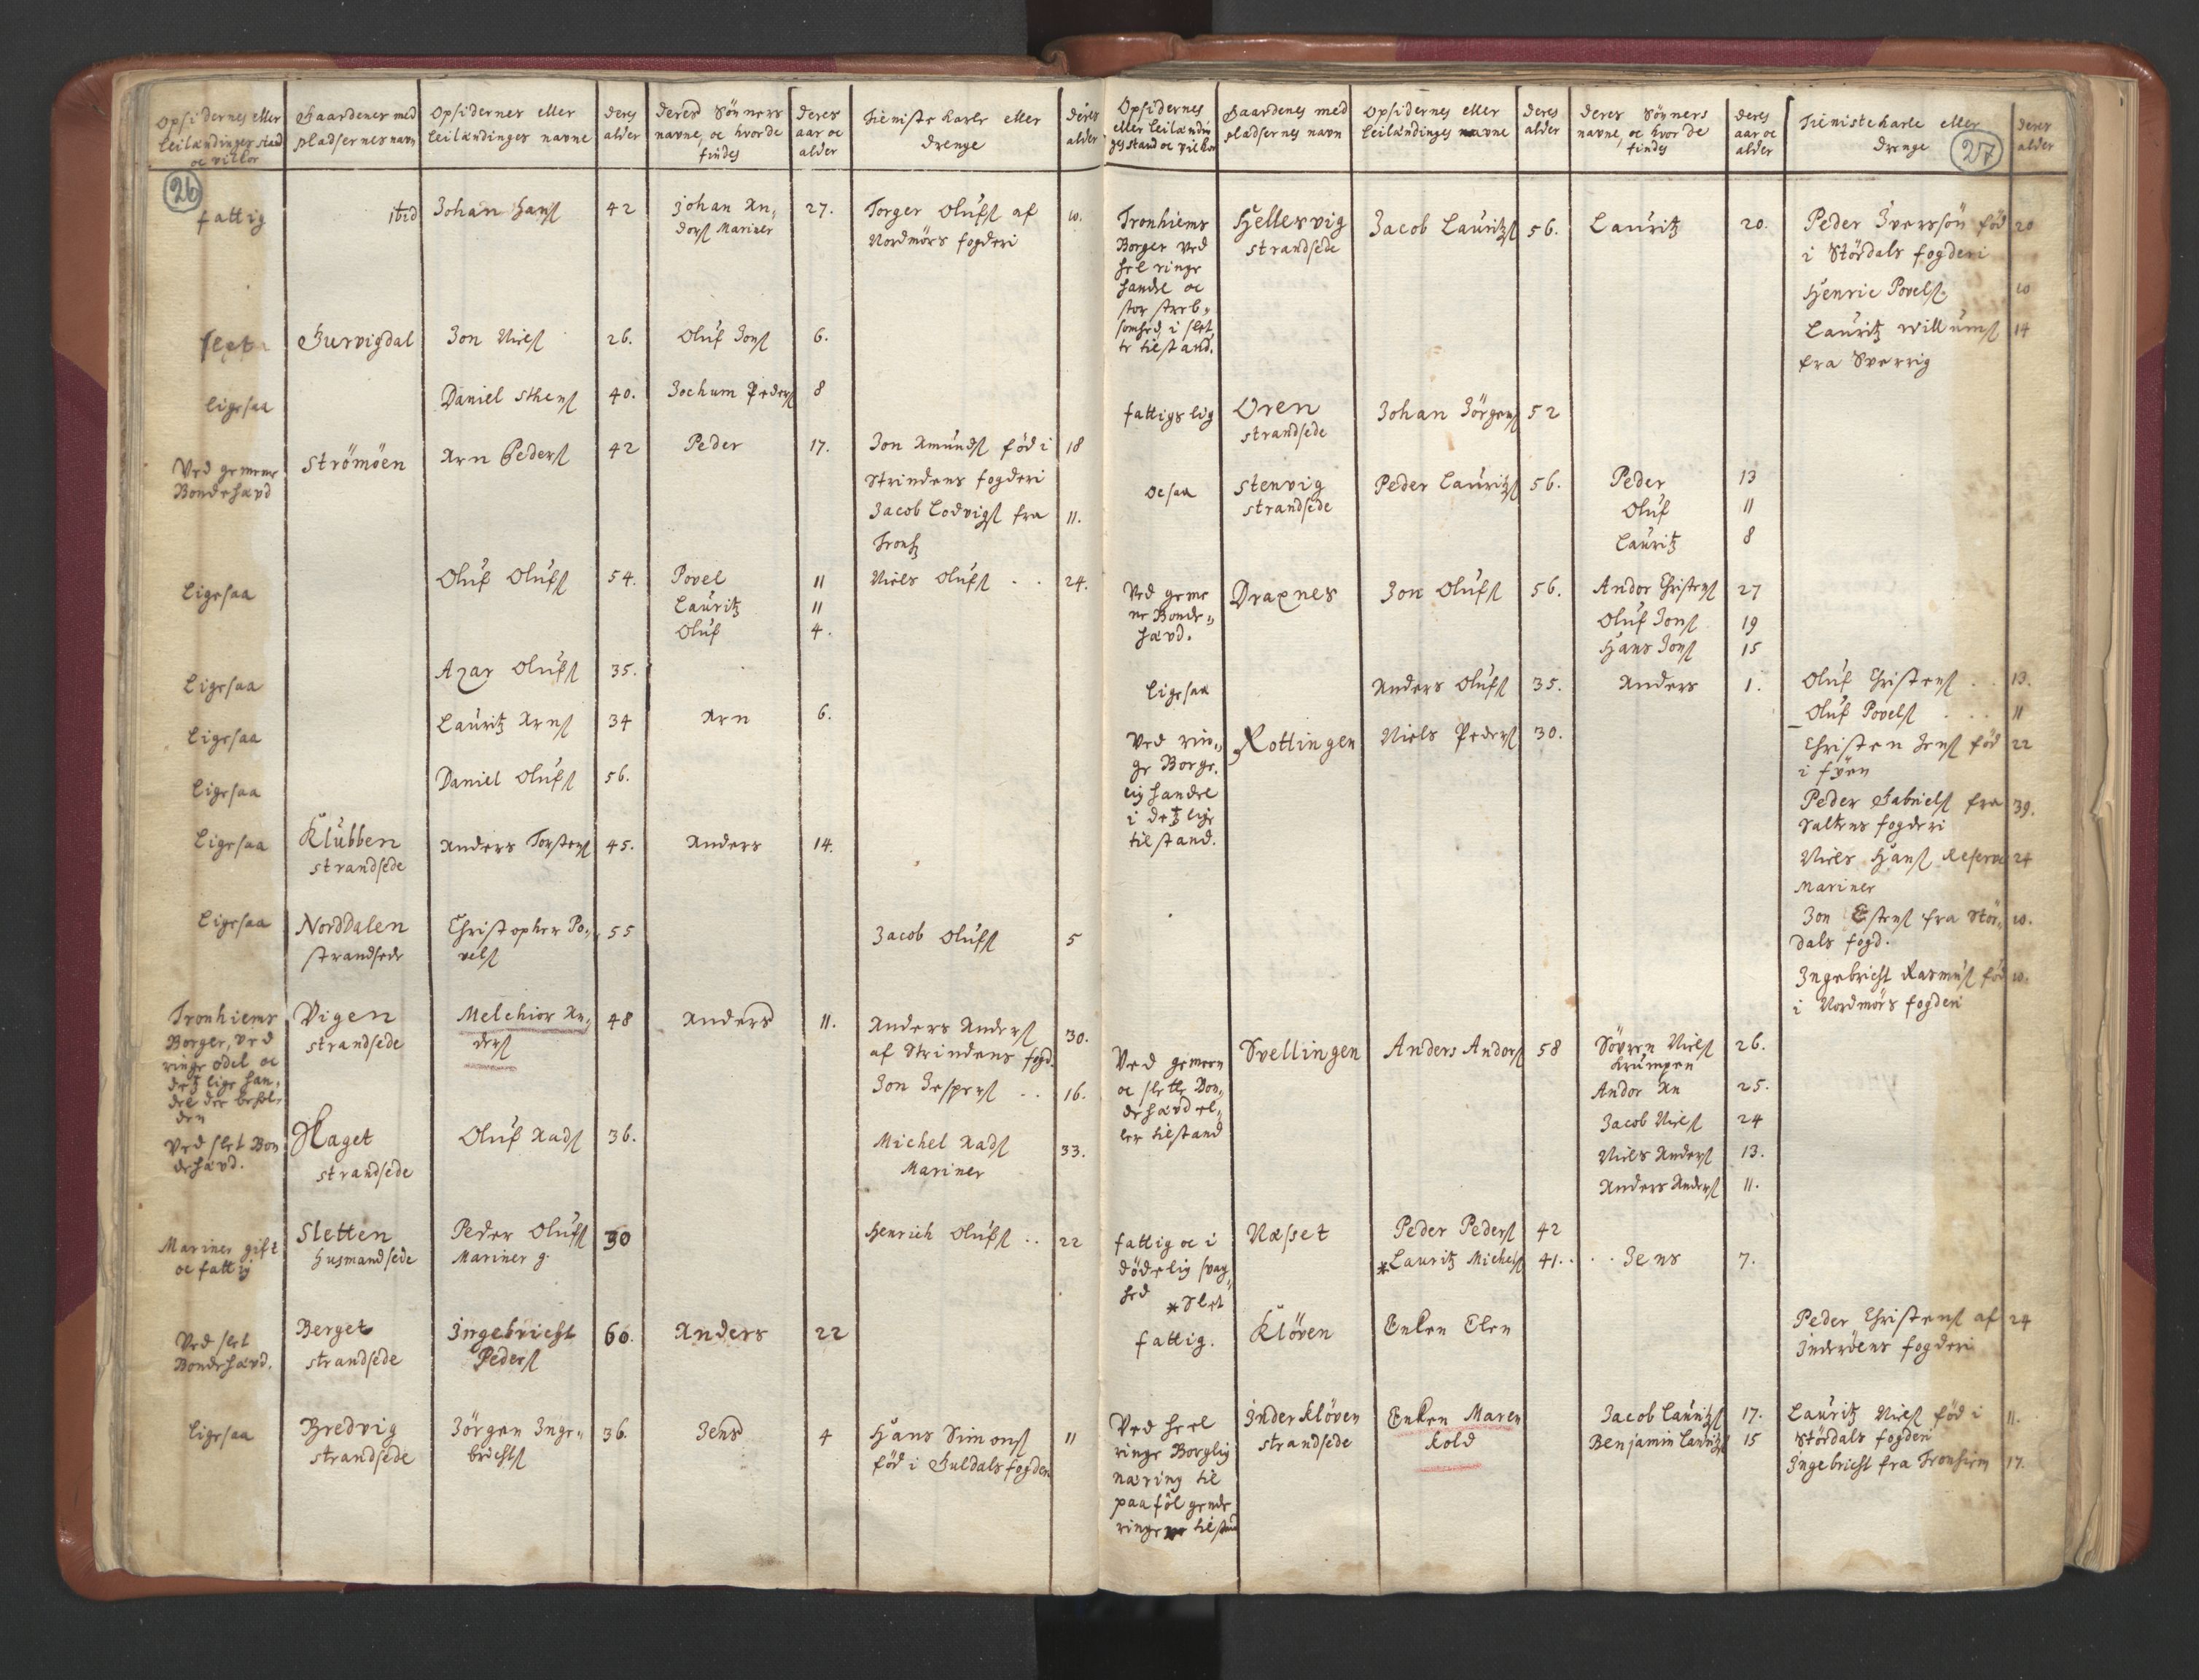 Opsidernes eller
leilændinges stand
oc vilkor
Gaardenes med
pladsernes navn
Opsidernes eller
leilændinges navne
deres
alder
deres Sönners
navne, oc hvor de
findes
deres
aar oc
alder
Tieniste karle eller
drenge
deres
alder
26
fattig
ibid
Johan Hansſ
42
Johan An,
dersſ Mariner
27.
Torger Olufsſ af
Nordmörs fogderi
10.
slet
Gurvigdal
Jon Nielsſ
26.
Oluf Jonsſ
6.
ligesaa
Daniel Sthensſ
40.
Jochum Pedersſ
8
Ved gemene
Bondehævd
Strömöen
Arn Pedersſ
42
Peder
17.
Jon Amundsſ föd i
18
Strindens fogderi
Jacob Lodvigsſ fra
11.
Tronh
Ligesaa
Oluf Olufsſ
54.
Povel
11
Niels Olufsſ . .
24.
Lauritz
11
Oluf
4.
Ligesaa
Azar Olufsſ
35.
Ligesaa
Lauritz Arnsſ
34
Arn
6.
Ligesaa
Daniel Olufsſ
56.
Ligesaa
Klubben
strandsede
Anders Torstensſ
45.
Anders
14.
Ligesaa
Norddalen
strandsede
Christopher Po,,
velsſ
55
Jacob Olufsſ
5
Tronhiems
Borger, ved
ringe odel oc
detz lige han,
del der behol,
den
Vigen
strandsede
Melchior An,
dersſ
48
Anders
11.
Anders Andersſ
af Strindens fogd.
30.
Jon Jespersſ . .
16.
Ved slet Bon
dehævd.
Haget
strandsede
Oluf Madsſ
36.
Michel Madsſ
Mariner
33.
Mariner gift
oc fattig
Sletten
husmandsede
Peder Olufsſ
Mariner g.
30
Henrich Olufsſ . .
22
Ved slet
Bondehævd.
Berget
strandsede
Ingebricht
Pedersſ
60.
Anders
22
ligesaa
Bredvig
strandsede
Jörgen Inge,,
brichtsſ
36.
Jens
4
Hans Simonsſ
föd i Guldals fogderi
11
Opsidernes
eller leilændin
ges stand oc vilkor
Gaardenes med
pladsernes navn
Opsidernes eller
leilændinges navne
deres
alder
deres Sönners
navne, oc hvor de
findes
deres
aar oc
alder
Tieniste karle eller
drenge
27
deres
alder
Tronhiems
Borger ved
hel ringe
handel oc
stor streb,
somhed i slet,
te tilstand.
Hellesvig
strandsede
Jacob Lauritzsſ
56.
Lauritz
20.
Peder Iversön föd
20
i Stördals fogderi
Henric Povelsſ.
10
Lauritz Willumsſ
14
fra Sverrig
fattigslig
Oren
strandsede
Johan Jörgensſ
52
ocsaa
Stenvig
strandsede
Peder Lauritzsſ
56.
Peder
13
Oluf
11
Lauritz
8
Ved geme
ne Bonde,,
hævd.
Draxnes
Jon Olufsſ
56.
Andor Christensſ
27
Oluf Jonsſ
19
Hans Jonsſ
15
ligesaa
Anders Olufsſ
35.
Anders
1.
Oluf Christensſ . .
13.
Oluf Povelsſ . . .
11
Ved rin,,
ge Borge,
lig handel
i detz lige
tilstand.
Rottingen
Niels Pedersſ
30.
Christen Jensſ föd
22
i fyen
Peder Gabrielsſ fra
39.
Saltens fogderi
Niels Hansſ Reserve
24
Mariner
Jon Estensſ fra Stör,,
10.
dals fogd.
Ingebricht Rasmusſ föd
10.
i Nordmörs fogderi
Ved gemeen
oc slette Bon,,
dehævd el,,
ler tilstand
Svellingen
Anders Andorsſ
58
Sövren Nielsſ
krumpen
26.
Andor An
25.
Jacob Nielsſ
24
Niels Andersſ
13.
Anders Andersſ
11.
fattig oc i
dödelig svag,,
hed
*Slet
Næset
Peder Pedersſ
42
*Lauritz Michelsſ
41. .
. . Jens
7.
fattig.
Klöven
Enken Elen
Peder Christensſ af
24
Inderöens fogderi
Ved heel
ringe Borglig
næring til
paafölgende
ringe tilstand
Inderklöven
strandsede
Enken Maren
kold
Jacob Lauritzsſ
17.
Benjamin Lauritzsſ
15
Lauritz Nielsſ föd i
11.
Stördals fogderi
Ingebricht fra Tronhiem
17.